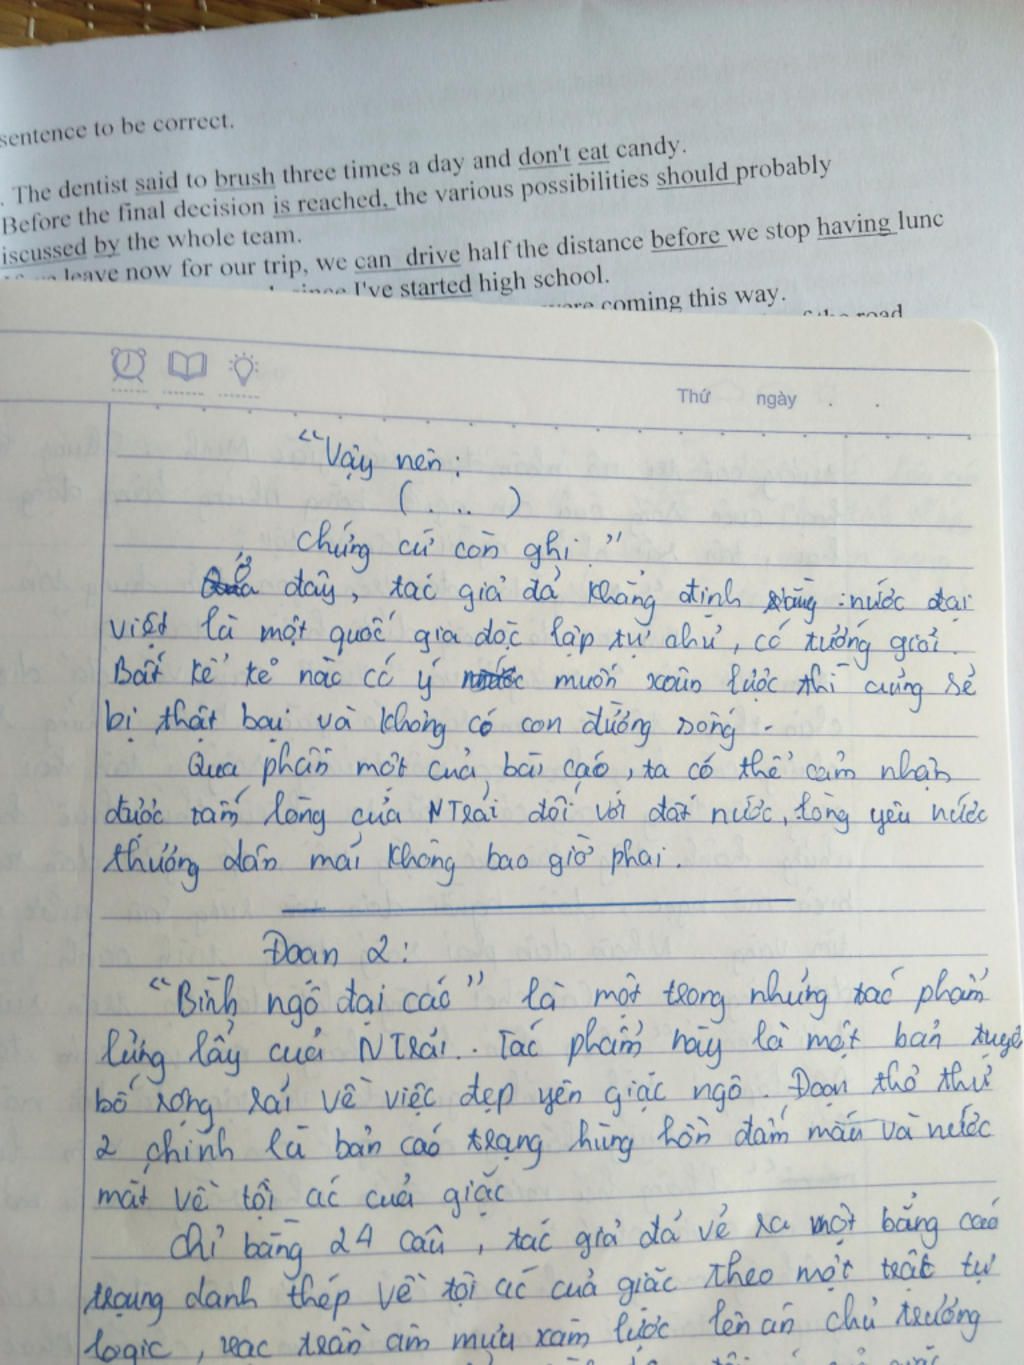 sentence to be correct.
. The dentist said to brush three times a day and don't eat candy.
Before the final decision is reached, the various possibilities should probably
iscussed by the whole team.
leave now for our trip, we can drive half the distance before we stop having lunc
since I've started high school.
were coming this way.
of the road
Thứ ngày . .
"Vậy nên:
(...)
chứng cứ còn ghi."
Ở đây, tác giả đã khẳng định rằng: nước đại
việt là một quốc gia độc lập tự chủ, có tướng giỏi.
Bất kể kẻ nào có ý muốn xâm lược thì cũng sẽ
bị thất bại và không có con đường sống.
Qua phần một của bài cáo, ta có thể cảm nhận
được tấm lòng của NTrãi đối với đất nước, lòng yêu nước
thương dân mãi không bao giờ phai.
Đoạn 2:
"Bình ngô đại cáo" là một trong những tác phẩm
lừng lẫy của NTrãi. Tác phẩm này là một bản tuyê
bố rộng rãi về việc dẹp yên giặc ngô. Đoạn thơ thứ
2 chính là bản cáo trạng hùng hồn đẫm máu và nước
mắt về tội ác của giặc
Chỉ bằng 24 câu, tác giả đã vẽ ra một bảng cáo
trạng danh thép về tội ác của giặc theo một trật tự
logic, vạc trần âm mưu xâm lược lên án chủ trương